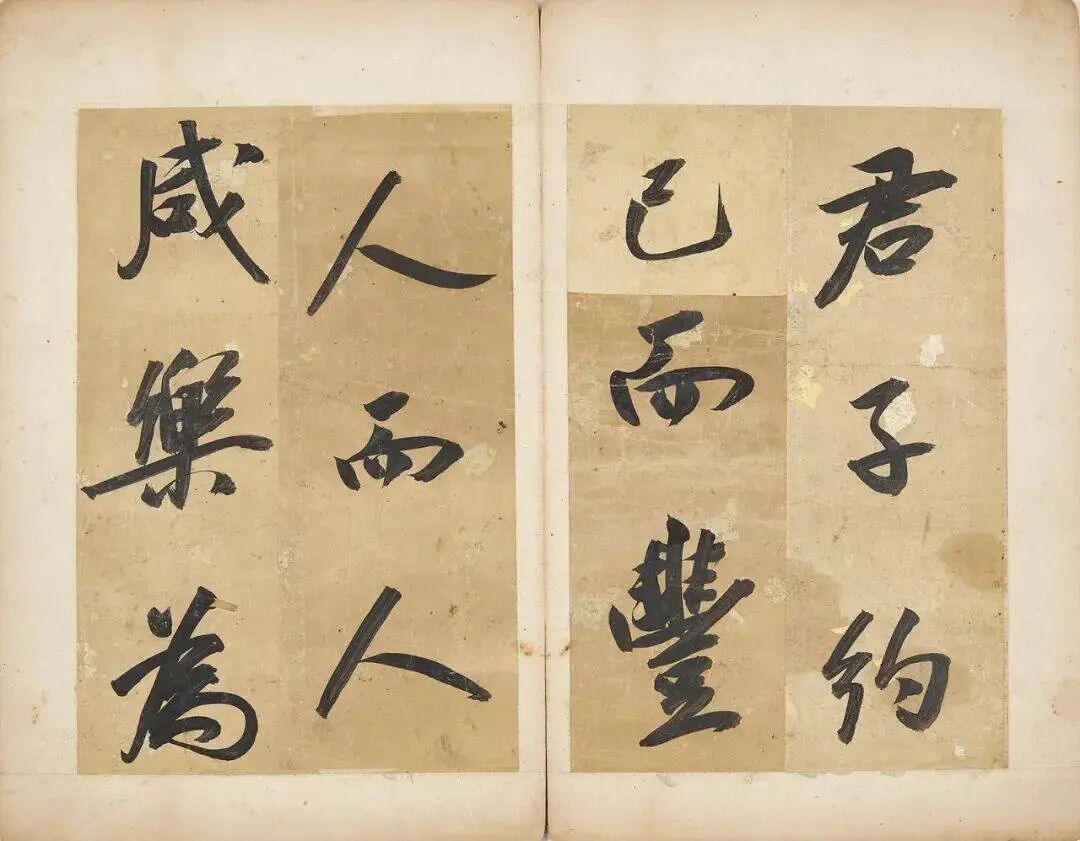 君子約
己而豐
人而人
咸樂為